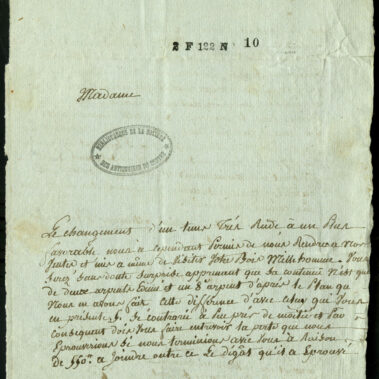 2 F 122 N 10
Madame
BIBLIOTHEQUE DE LA SOCIETE
DES ANTIQUAIRES DE
Le changement d'un tems Très Rude à un Plus
favorable nous a cependant Permis de nous Rendre a
et mis a même de visiter Votre Bois Malhomme. Vous
serez sans doute surprise apprenant que sa continence N'est que
de deux arpale Crun et un 8e arpent d'après le Plan que
Nous en avons fait, cette différence d'avec celui que Vous
en présente à peu pres de moitié et Par
conséquent dois Vous faire entrevoir la perte que nous
Eprouverions si nous terminions avec Vous à Raison
de 550tt a joindre outre ce Le dégât qu'il a Eprouvé